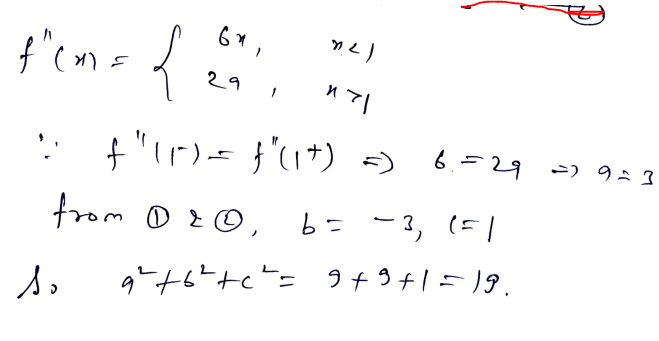 f''(x) = { 6x, x<1
2a, x>1
∵ f''(1⁻) = f''(1⁺) ⇒ 6 = 2a ⇒ a = 3
from ① & ②, b = -3, c = 1
So a² + b² + c² = 9 + 9 + 1 = 19.